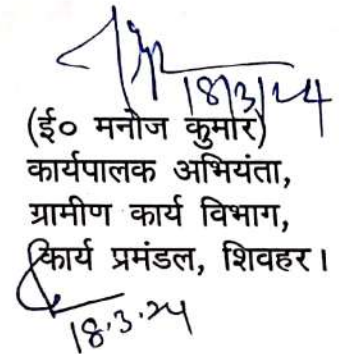 18/3/24
(ई० मनोज कुमार)
कार्यपालक अभियंता,
ग्रामीण कार्य विभाग,
कार्य प्रमंडल, शिवहर।
18.3.24